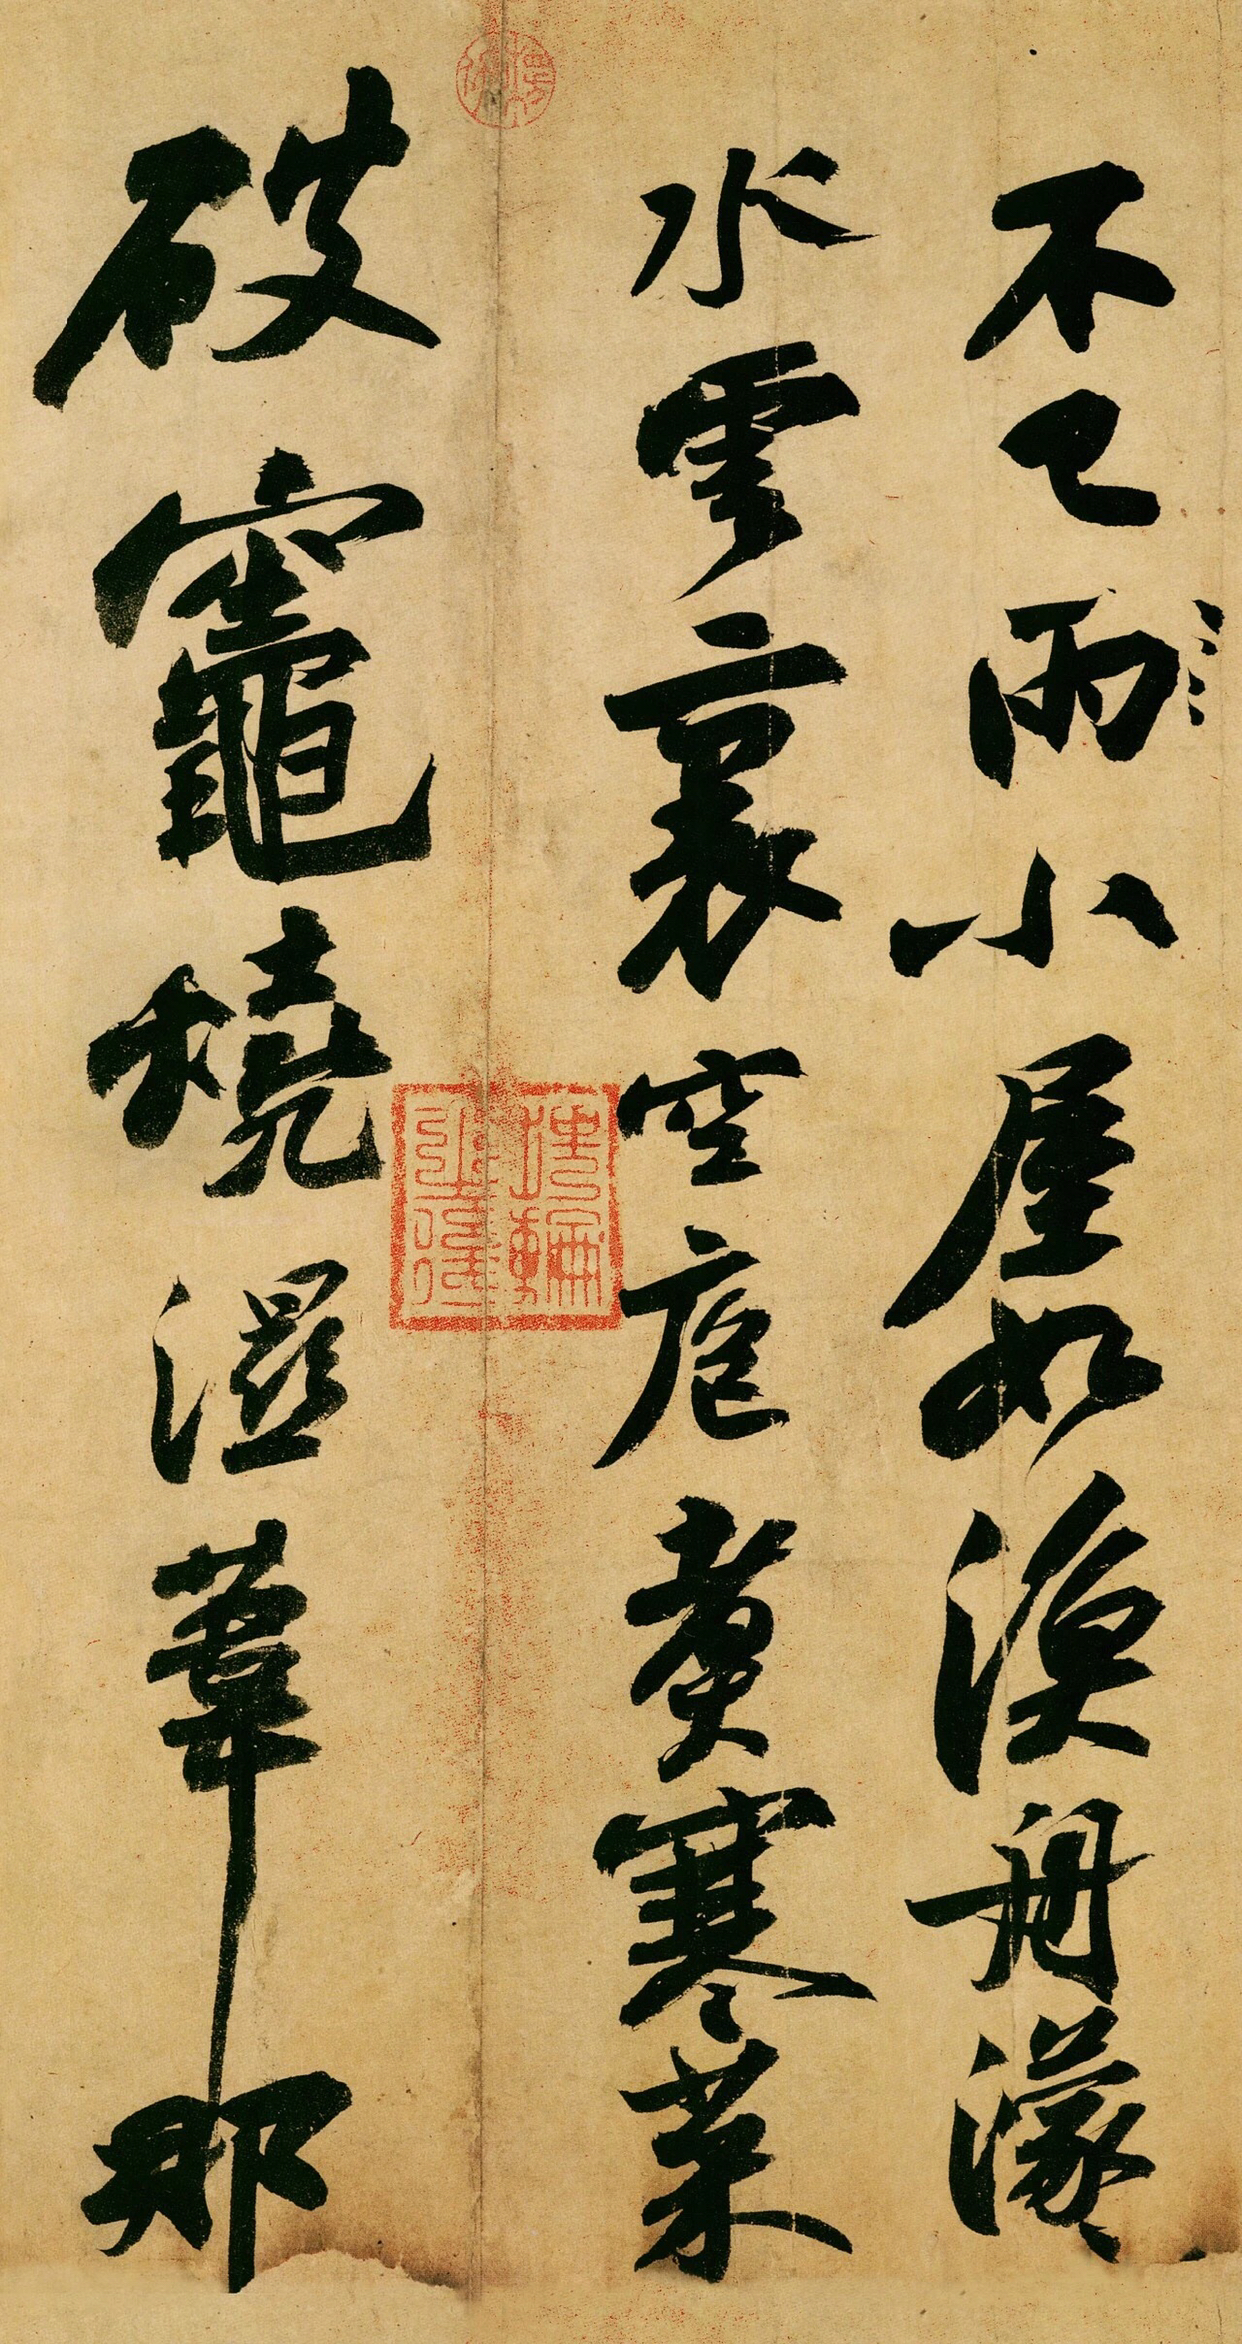 不已雨小屋如漁舟濛〻
水雲裏空庖煮寒菜
破竈燒濕葦那